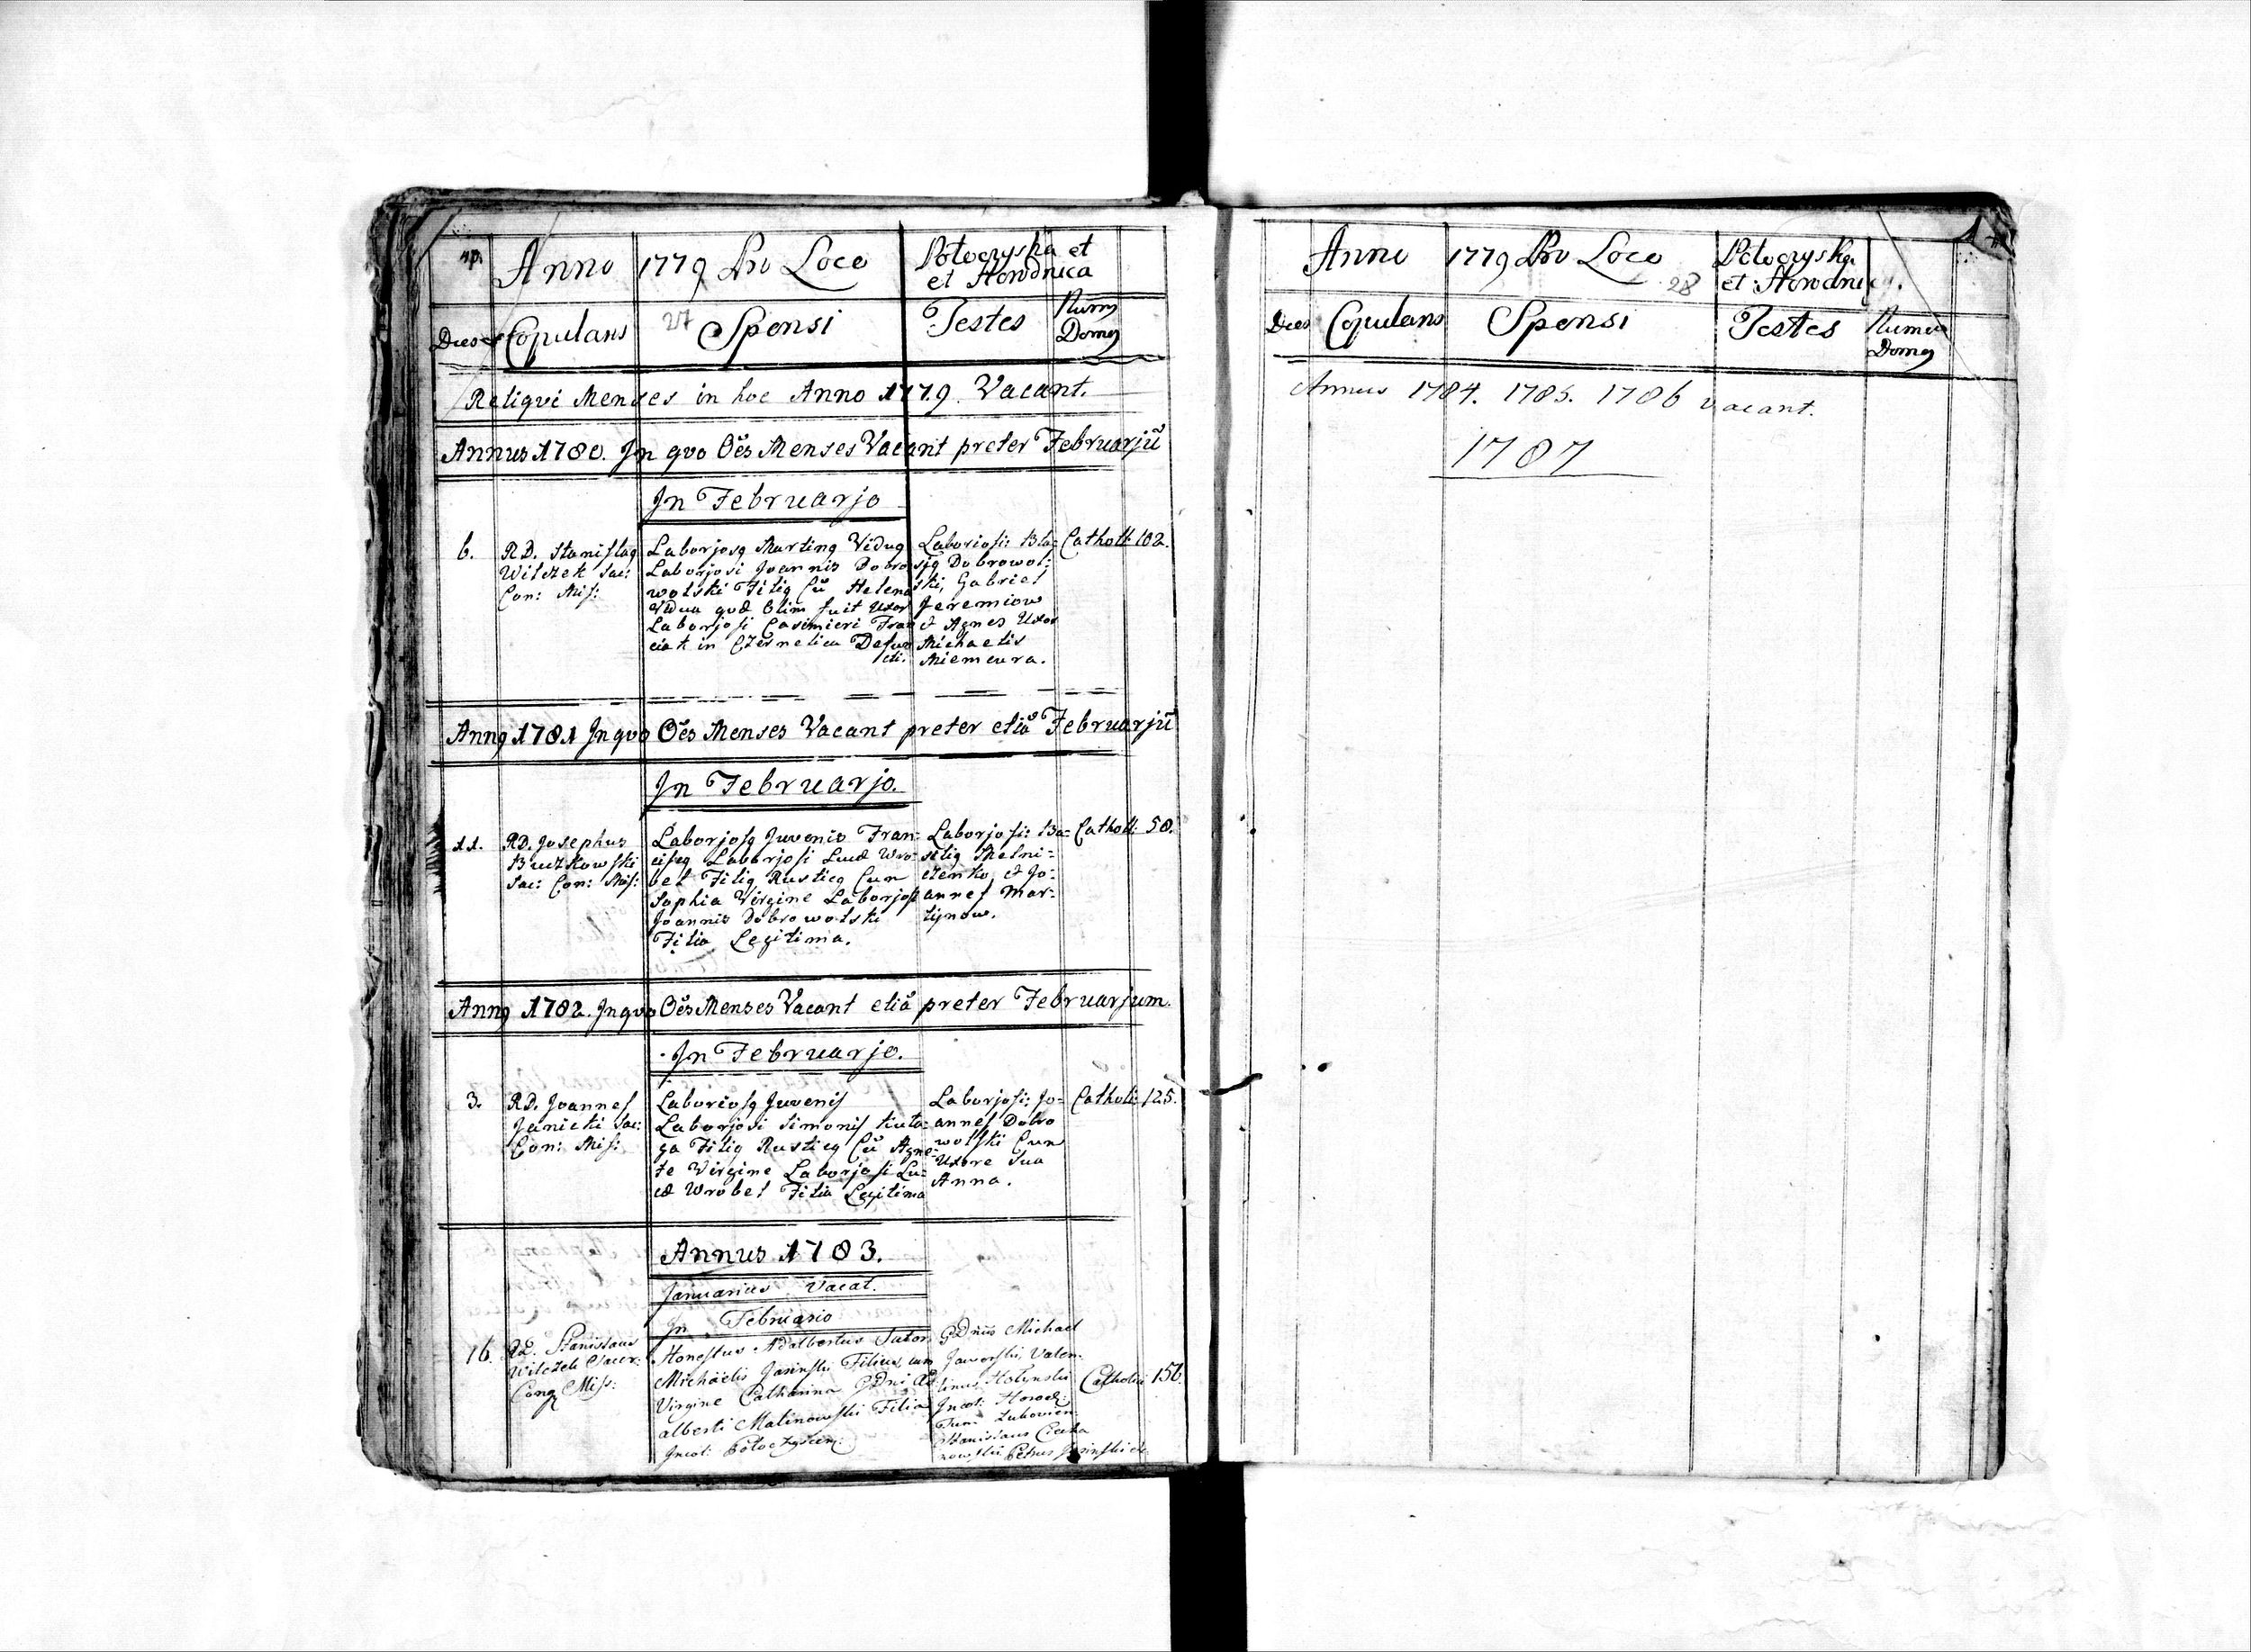 Anno 1779 Pro Loco Potoczyska et
et Horodnica
27
Dies Copulans Sponsi Testes Num9
Dom9
Reliqvi Menses in hoc Anno 1779. Vacant.
Annus 1780. Jn qvo Oēs Menses Vacant preter Februarjū
Jn Februarjo
6.
RD. Stanislaq
Wilczek Sac:
Con: Mis:
Laborjosq Martinq Viduq
Laborjosi Joannis Dobro
wolski Filiq Cū Helena
Vidua qvæ Olim fuit Uxor
Laborjosi Casimieri Fran
ciak in Czernelica Defun
cti.
Laboriosi: Bla-
sjq Dobrowol:
ski, Gabriel
Jeremiow
& Agnes Uxor
Michaelis
Niemcura.
Catholi: 102.
Ann9 1781 Jn qvo Oēs Menses Vacant preter etiā Februarjū
Jn Februarjo.
11.
RD. Josephus
Buczkowski
Sac: Con: Mis:
Laborjosq Juvenis Fran:
cisq Laborjosi Lucæ Wro-
bel Filiq Rusticq Cun
Sophia Virgine Laborjosi
Joannis Dobrowolski
Filia Legitima.
Laborjosi: Ba-
siliq Melni-
czenko, & Jo-
annes Mar-
tynow.
Catholi: 50.
Ann9 1782. Jn qvo Oēs Menses Vacant etiā preter Februarjum.
Jn Februarjo.
3.
RD. Joannes
Janicki Sac:
Con: Mis:
Laboriosq Juvenis
Laborjosi Simonis Kuta-
ga Filiq Rusticq Cū Agne-
te Virgine Laborjosi Lu-
cæ Wrobel Filia Legitima
Laborjosi: Jo-
annes Dobro
wolski Cun
Uxore Sua
Anna.
Catholi: 125.
Annus 1783.
Januarius Vacat.
Jn Februario
16.
RD. Stanislaus
Wilczek Sacer:
Cong Miss:
Honestus Adalbertus Sutor
Michaelis Jasinski Filius, cum
Virgine Catharina GDni Ad
alberti Malinowski Filia
Jncol: Potoczyscen:
GDnus Michael
Jaworski, Valen-
tinus Holynski
Jncol: Horod:
Tum
Stanislaus
nowski Petrus Jasinski
Catholi: 156.
Anno 1779 Pro Loco Potoczyska
et Horodnica.
28
Dies Copulans Sponsi Testes Numer9
Dom9
Annus 1784. 1785. 1786 vacant.
1787